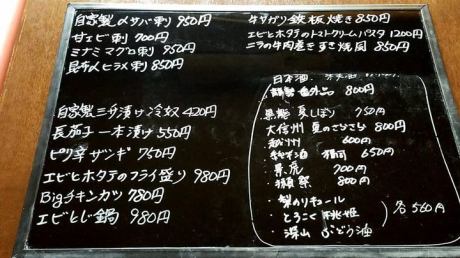 自家製〆サバ刺 950円
甘エビ刺 700円
ミナミマグロ刺 950円
昆布〆ヒラメ刺 850円
自家製三升漬け冷奴 420円
長茄子一本漬け 550円
ピリ辛ザンギ 750円
エビとホタテのフライ盛り 980円
Bigチキンカツ 780円
エビとじ鍋 980円
牛サガリ鉄板焼き 850円
エビとホタテのトマトクリームパスタ 1200円
ニラの牛肉巻きすき焼風 850円
日本酒
番外品 800円
夏しぼり 750円
大信州 夏のさらさら 800円
越州 600円
650円
700円
獺祭 800円
・梨のリキュール
・とろこく 桃姫
・深山 ぶどう油
各560円